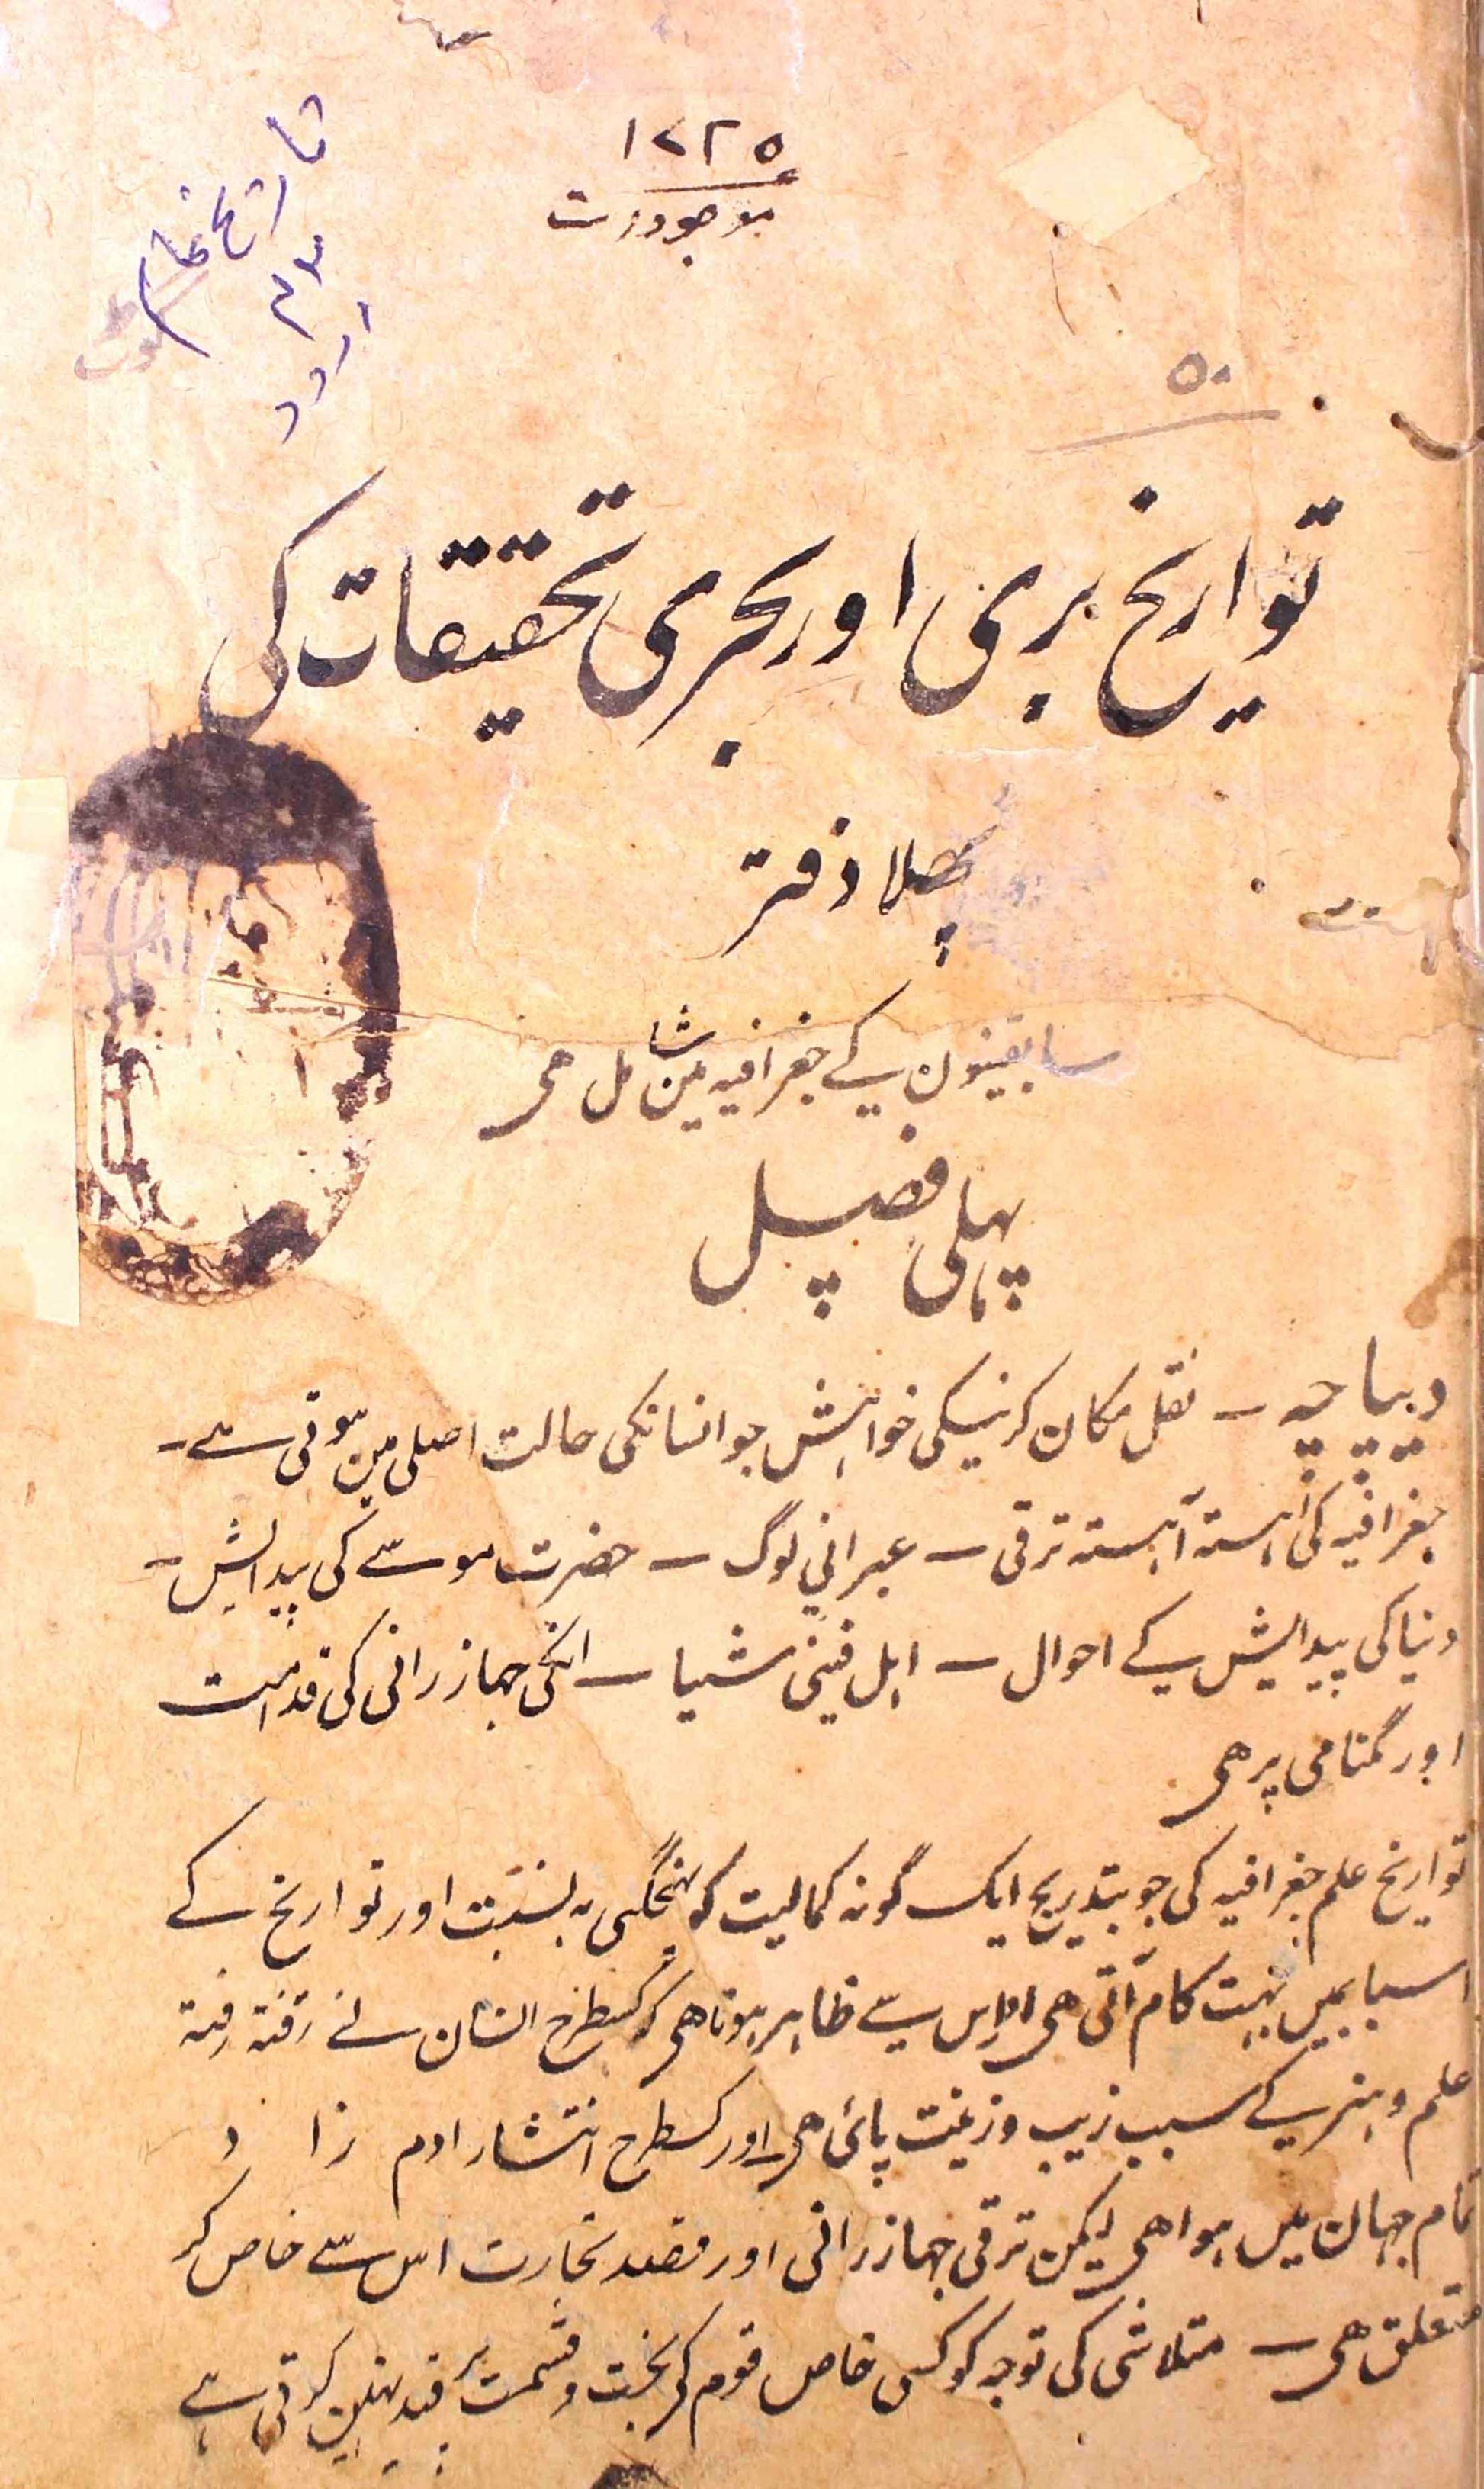 ۱۷۲۵
موجودست
تاریخ عالم
اردو
۵۰
تواریخ بری اور بحری تحقیقات کی
پہلا دفتر
سابقینون کے جغرافیہ مین شامل ھی
پہلی فصل
دیباچہ ــ نقل مکان کرنیکی خواہش جو انسانکی حالت اصلی مین ہوتی ہے ــ
جغرافیہ کی آہستہ آہستہ ترقی ــ عبرانی لوگ ــ حضرت موسے کی پیدایش ــ
دنیا کی پیدایش کے احوال ــ اہل فینی شیا ــ انکی جہازرانی کی قدامت
اور گمنامی پر ھی
تواریخ علم جغرافیہ کی جو بتدریج ایک گونہ کمالیت کو پہنچگی بہ نسبت اور تواریخ کے
اسبابمیں بہت کام آتی ھی اور اس سے ظاہر ہوتا ھی کہ کسطرح انسان نے رفتہ رفتہ
علم و ہنر کے سبب زیب و زینت پائی ھی اور کسطرح انتشار ادم زاد
تمام جہان میں ہوا ھی لیکن ترقی جہازرانی اور مقصد تجارت اس سے خاص کر
متعلق ھی ــ متلاشی کی توجہ کو کسی خاص قوم کی بخت و قسمت پر قید نہین کرتی ہے